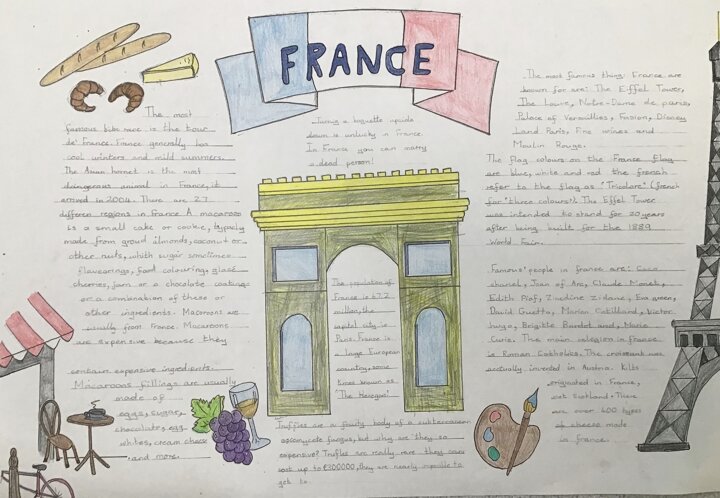 FRANCE
The most
famous bike race is the tour
de' France. France generally has
cool winters and mild summers.
The Asian hornet is the most
dangerous animal in France, it
arrived in 2004. There are 27
different regions in France. A macaroon
is a small cake or cookie, typicly
made from groud almonds, coconut or
other nuts, with sugar sometimes
flavourings, food colouring, glacé
cherries, jam or a chocolate coating
or a combanation of these or
other ingredients. Macroons are
usually from France. Macaroons
are expensive because they
contain expensive ingredients.
Macaroons fillings are usually
made of
eggs, sugar,
chocolate, egg
whites, cream cheese
and more.
Turnig a baguette upside
down is unlucky in France.
In France you can marry
a dead person!
The population of
France is 67.2
million, the
capital city is
Paris. France is
a large European
country, some
times known as
'The Hexagon'.
Truffles are a fruity body of a subterranean
ascomycete fungus, but why are they so
expensive? Trufles are really rare they can
cost up to €300000, they are nearly imposible to
get to.
The most famous thing France are
known for are: The Eiffel Tower,
The Louvre, Notre-Dame de pareis,
Palace of Versaillies, Fasion, Disney
Land Paris, Fine wines and
Moulin Rouge.
The flag colours on the France flag
are blue, white and red the french
refer to the flag as 'Tricolore' (french
for 'three colours'). The Eiffel Tower
was intended to stand for 20 years
after being built for the 1889
World Fair.
Famous people in france are: Coco
chanel, Joan of Arc, Claude Monet,
Edith Piaf, Zinedine zidane, Eva green,
David Guetta, Marion Cotilliard, Victor
hugo, Brigitte Bardot and, Marie
Curie. The main relegion in france
is Roman Catholiks. The croissant was
actually invented in Austria. Kilts
originated in France,
not Scotland. There
are over 400 types
of cheese made
in france.